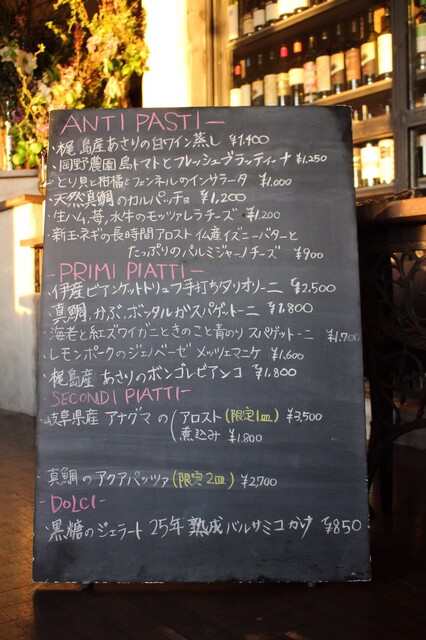 ANTI PASTI-
・梶島産あさりの白ワイン蒸し ¥1,400
・岡野農園島トマトとフレッシュヴラティーナ ¥1,250
・とり貝と柑橘とフェンネルのインサラータ ¥1,000
・天然真鯛のカルパッチョ ¥1,200
・生ハム、苺、水牛のモッツァレラチーズ ¥1,200
・新玉ネギの長時間アロスト 仏産イズニーバターと
たっぷりのパルミジャーノチーズ ¥900
-PRIMI PIATTI-
・伊産ビアンケットトリュフ手打ちタリオリーニ ¥2,500
・真鯛、かぶ、ボッタルガスパゲットーニ ¥1,800
・海老と紅ズワイガニときのこと青のり スパゲットーニ ¥1,700
・レモンポークのジェノベーゼ メッツェマニケ ¥1,600
・梶島産 あさりのボンゴレビアンコ ¥1,800
-SECONDI PIATTI-
・岐阜県産 アナグマの(アロスト(限定1皿) ¥3,500
煮込み ¥1,800
・真鯛のアクアパッツァ(限定2皿) ¥2,700
-DOLCI-
・黒糖のジェラート 25年熟成バルサミコかけ ¥850